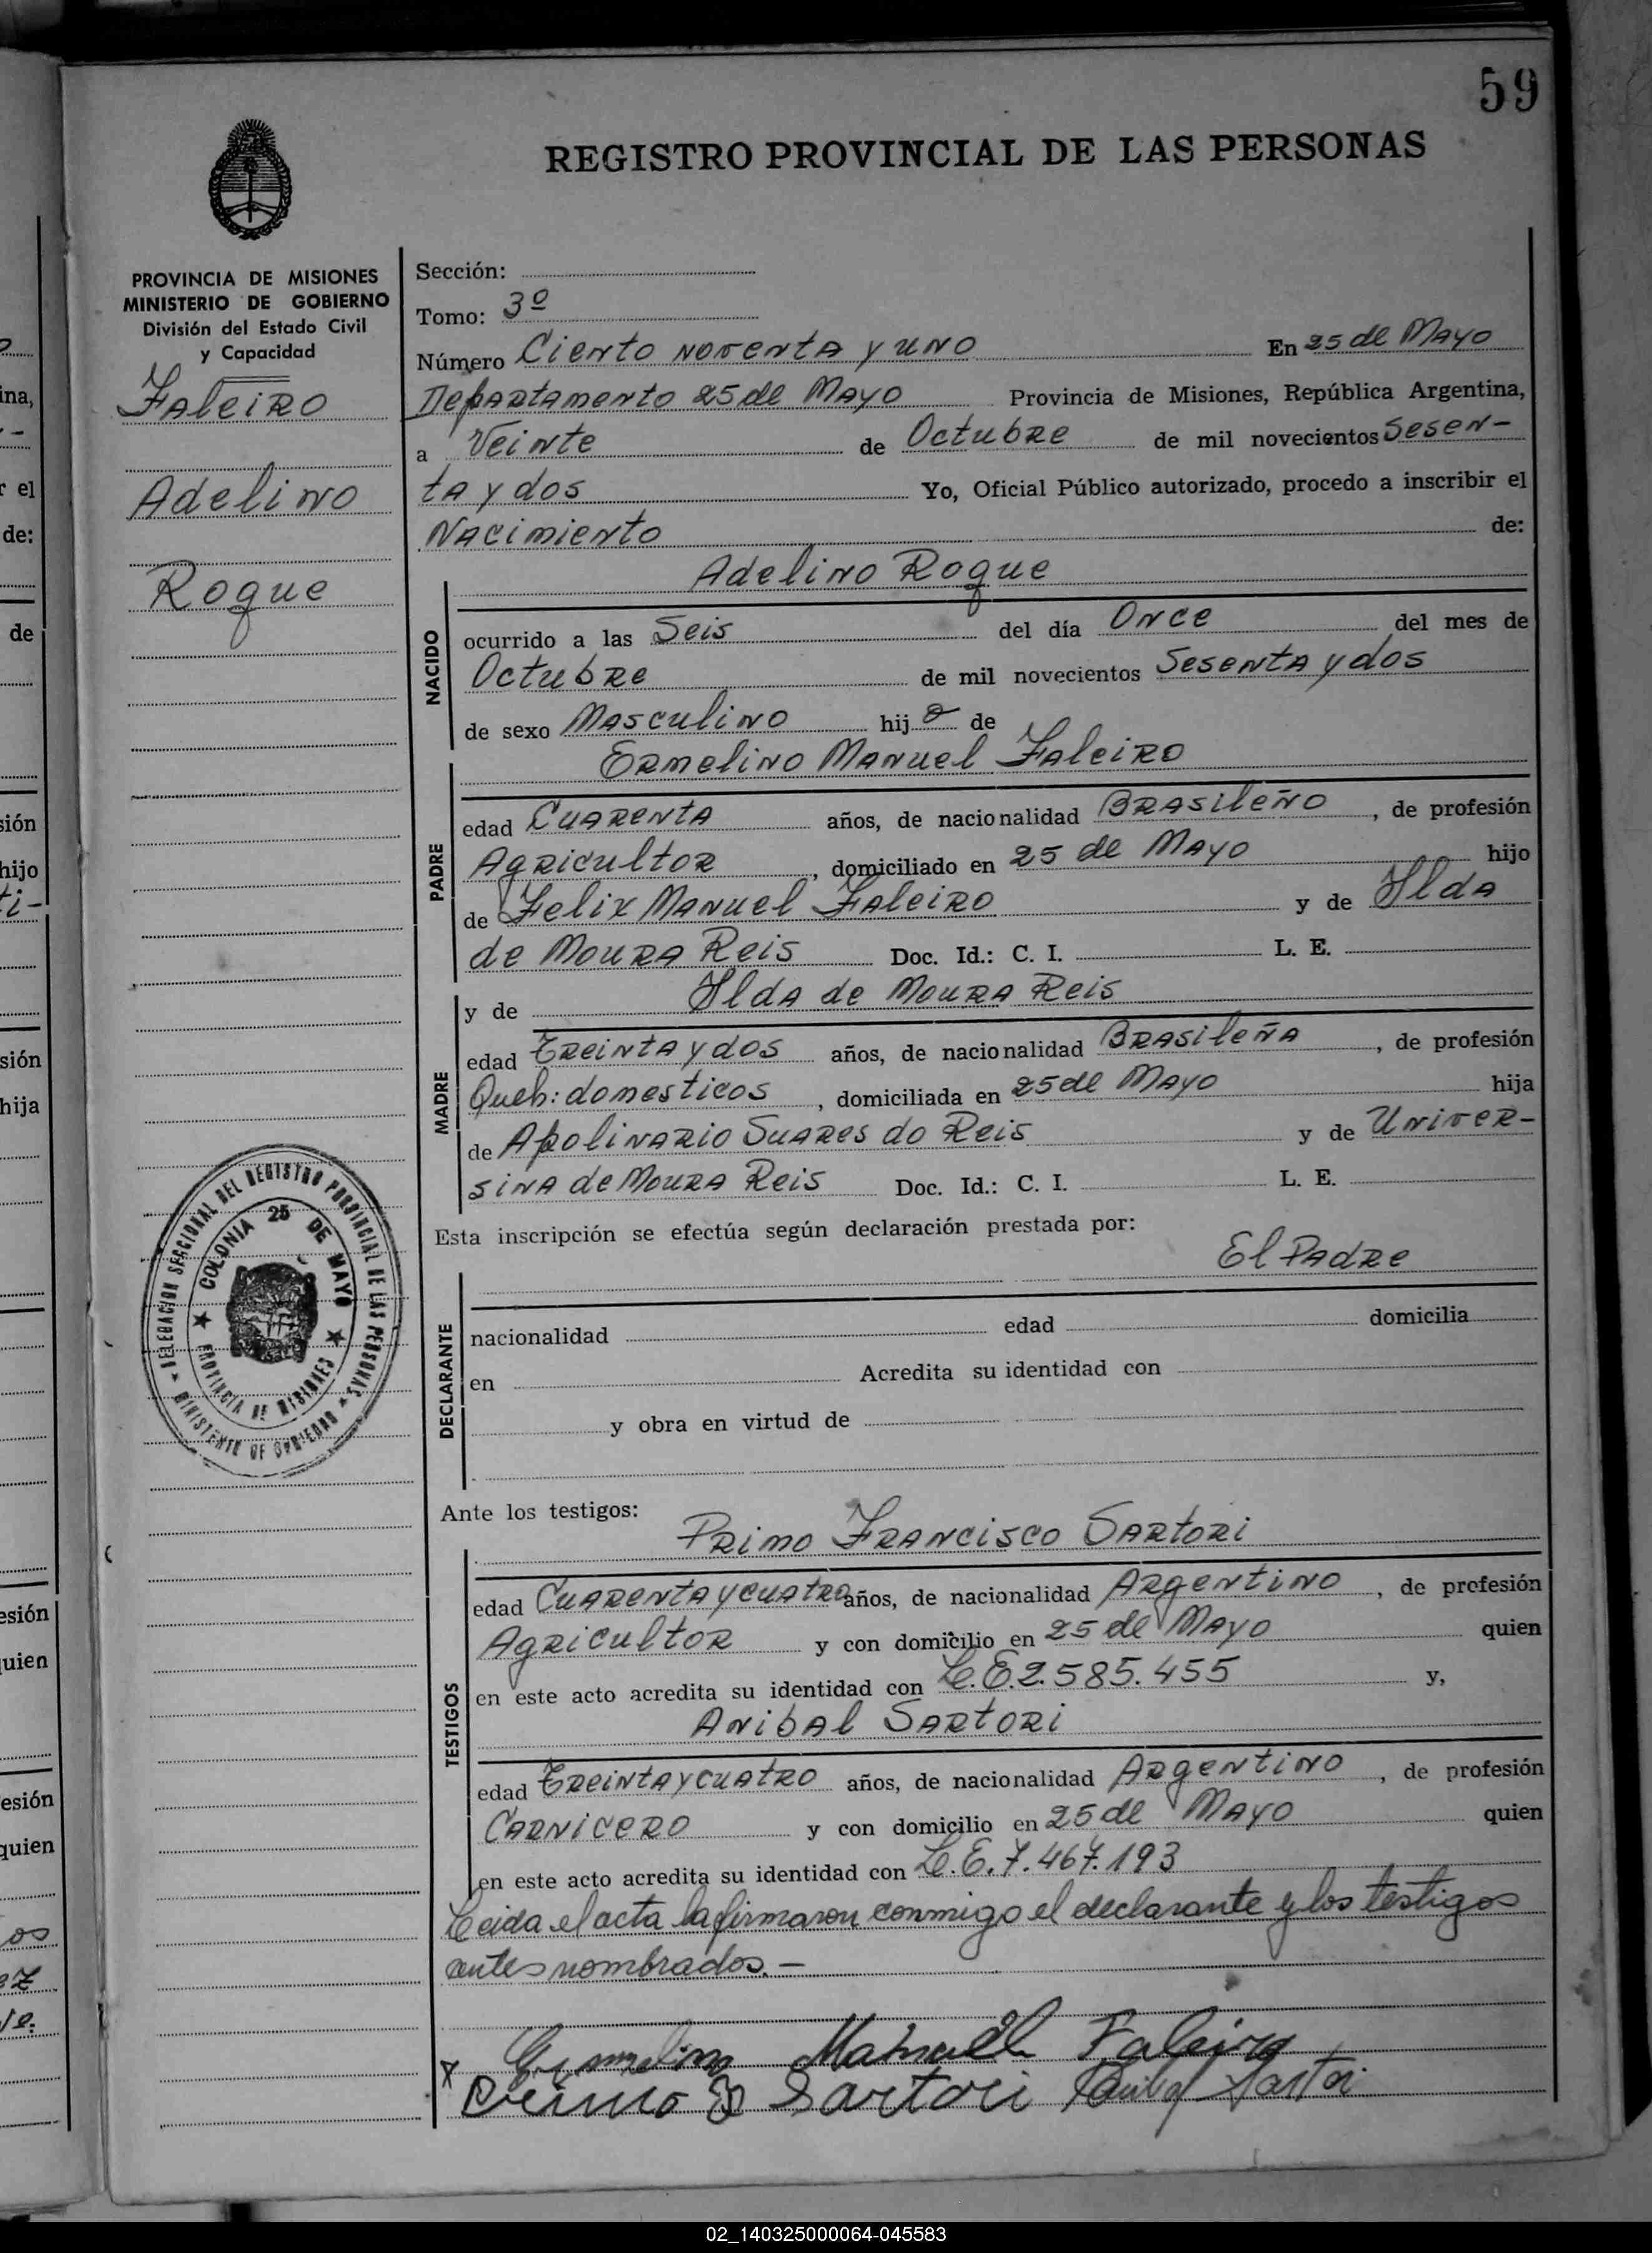 59
REGISTRO PROVINCIAL DE LAS PERSONAS
PROVINCIA DE MISIONES
MINISTERIO DE GOBIERNO
División del Estado Civil
y Capacidad
Faleiro
Adelino
Roque
DELEGACION SECCIONAL DEL REGISTRO PROVINCIAL DE LAS PERSONAS
MINISTERIO DE GOBIERNO
COLONIA 25 DE MAYO
PROVINCIA DE MISIONES
Sección:
Tomo: 3º
Número Ciento noventa y uno En 25 de Mayo
Departamento 25 de Mayo Provincia de Misiones, República Argentina,
a Veinte de Octubre de mil novecientos Sesen-
ta y dos Yo, Oficial Público autorizado, procedo a inscribir el
Nacimiento de:
Adelino Roque
NACIDO
ocurrido a las Seis del día Once del mes de
Octubre de mil novecientos Sesenta y dos
de sexo Masculino hijo de
Ermelino Manuel Faleiro
PADRE
edad Cuarenta años, de nacionalidad Brasileño, de profesión
Agricultor, domiciliado en 25 de Mayo hijo
de Felix Manuel Faleiro y de Ilda
de Moura Reis Doc. Id.: C. I. L. E.
MADRE
y de Ilda de Moura Reis
edad Treinta y dos años, de nacionalidad Brasileña, de profesión
Queh: domesticos, domiciliada en 25 de Mayo hija
de Apolinario Suares do Reis y de Univer-
sina de Moura Reis Doc. Id.: C. I. L. E.
Esta inscripción se efectúa según declaración prestada por:
El Padre
DECLARANTE
nacionalidad edad domicilia
en Acredita su identidad con
y obra en virtud de
Ante los testigos:
Primo Francisco Sartori
TESTIGOS
edad Cuarenta y cuatro años, de nacionalidad Argentino, de profesión
Agricultor y con domicilio en 25 de Mayo quien
en este acto acredita su identidad con L.E. 2.585.455 y,
Anibal Sartori
edad Treinta y cuatro años, de nacionalidad Argentino, de profesión
Carnicero y con domicilio en 25 de Mayo quien
en este acto acredita su identidad con L.E. 7.467.193
Leida el acta la firmaron conmigo el declarante y los testigos
antes nombrados.-
x Ermelino Manuell Faleiro
Primo F Sartori Anibal Sartori
ina,
r el
de:
de
sión
hijo
ti-
sión
hija
esión
quien
esión
quien
os
ez
02_140325000064-045583